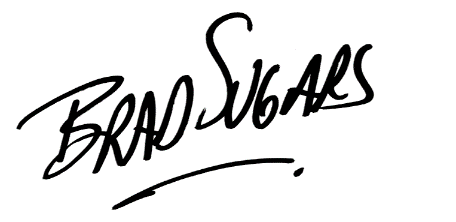 BRAD SUGARS